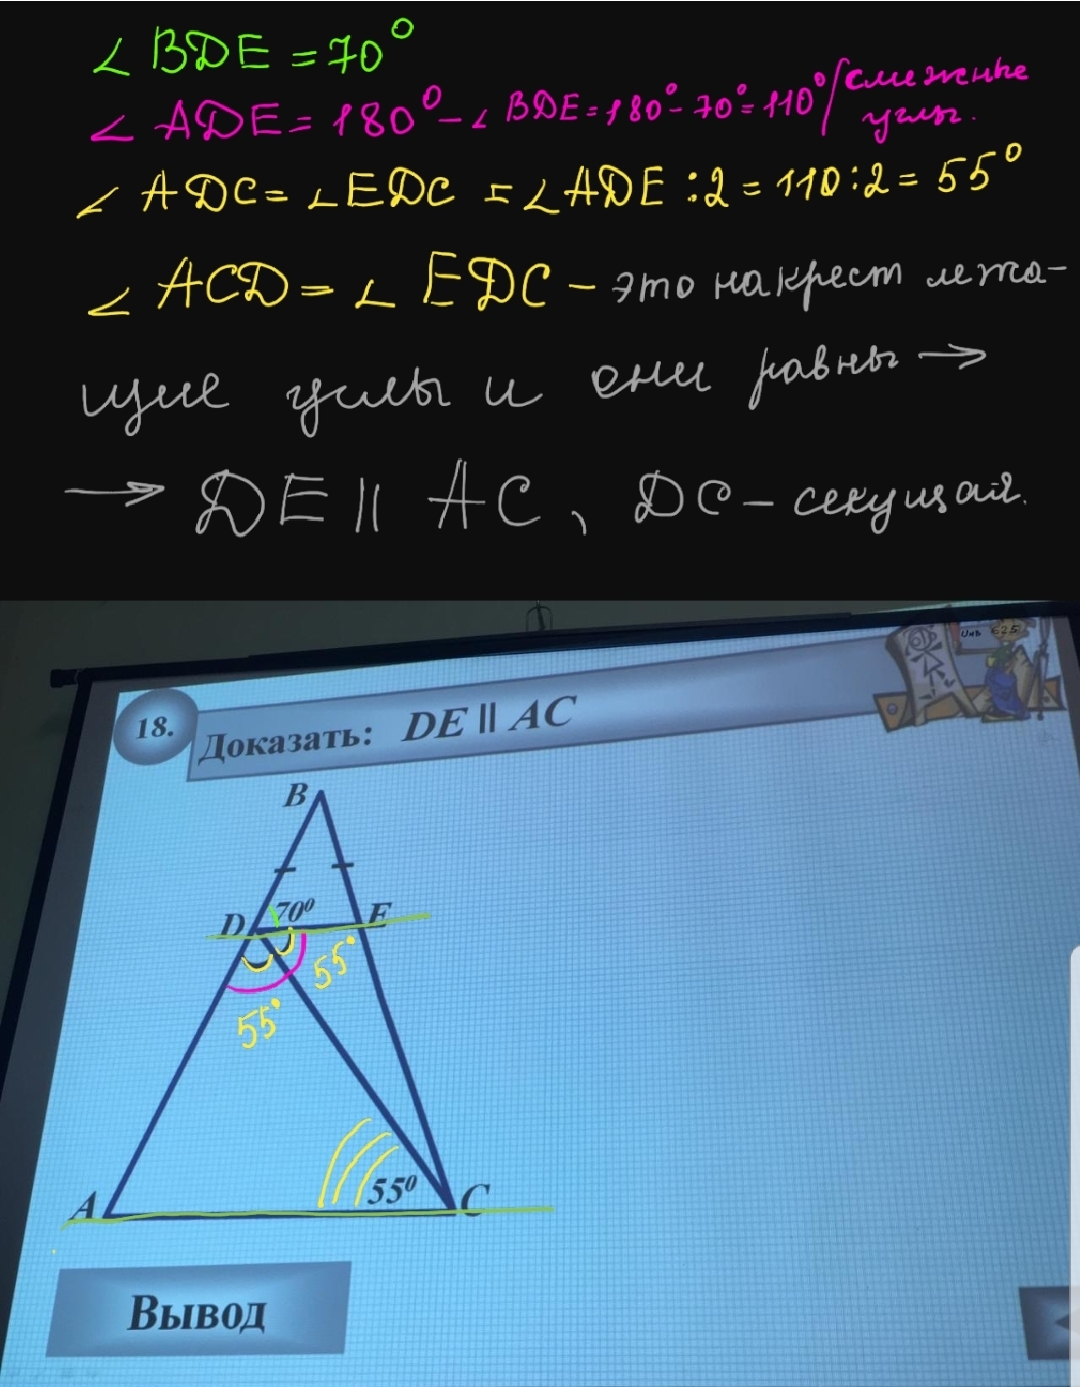 ∠ BDE = 70°
∠ ADE = 180° - ∠ BDE = 180° - 70° = 110° / смежные
углы.
∠ ADC = ∠EDC = ∠ADE : 2 = 110 : 2 = 55°
∠ ACD = ∠ EDC - это накрест лежа-
щие углы и они равны →
→ DE || AC, DC - секущая.
18. Доказать: DE || AC
B
D 70° E
55°
55°
55°
A C
Вывод